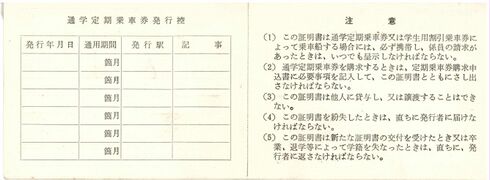 通学定期乗車券発行控
発行年月日 通用期間 発行駅 記事
箇月
箇月
箇月
箇月
箇月
箇月
注意
(1) この証明書は通学定期乗車券又は学生用割引乗車券に
よって乗車船する場合には、必ず携帯し、係員の請求が
あったときは、いつでも呈示しなければならない。
(2) 通学定期乗車券を購求するときは、定期乗車券購求申
込書に必要事項を記入して、この証明書とともにさし出
さなければならない。
(3) この証明書は他人に貸与し、又は譲渡することはでき
ない。
(4) この証明書を紛失したときは、直ちに発行者に届けな
ければならない。
(5) この証明書は新たな証明書の交付を受けたとき又は卒
業、退学等によって学籍を失なったときは、直ちに、発
行者に返さなければならない。